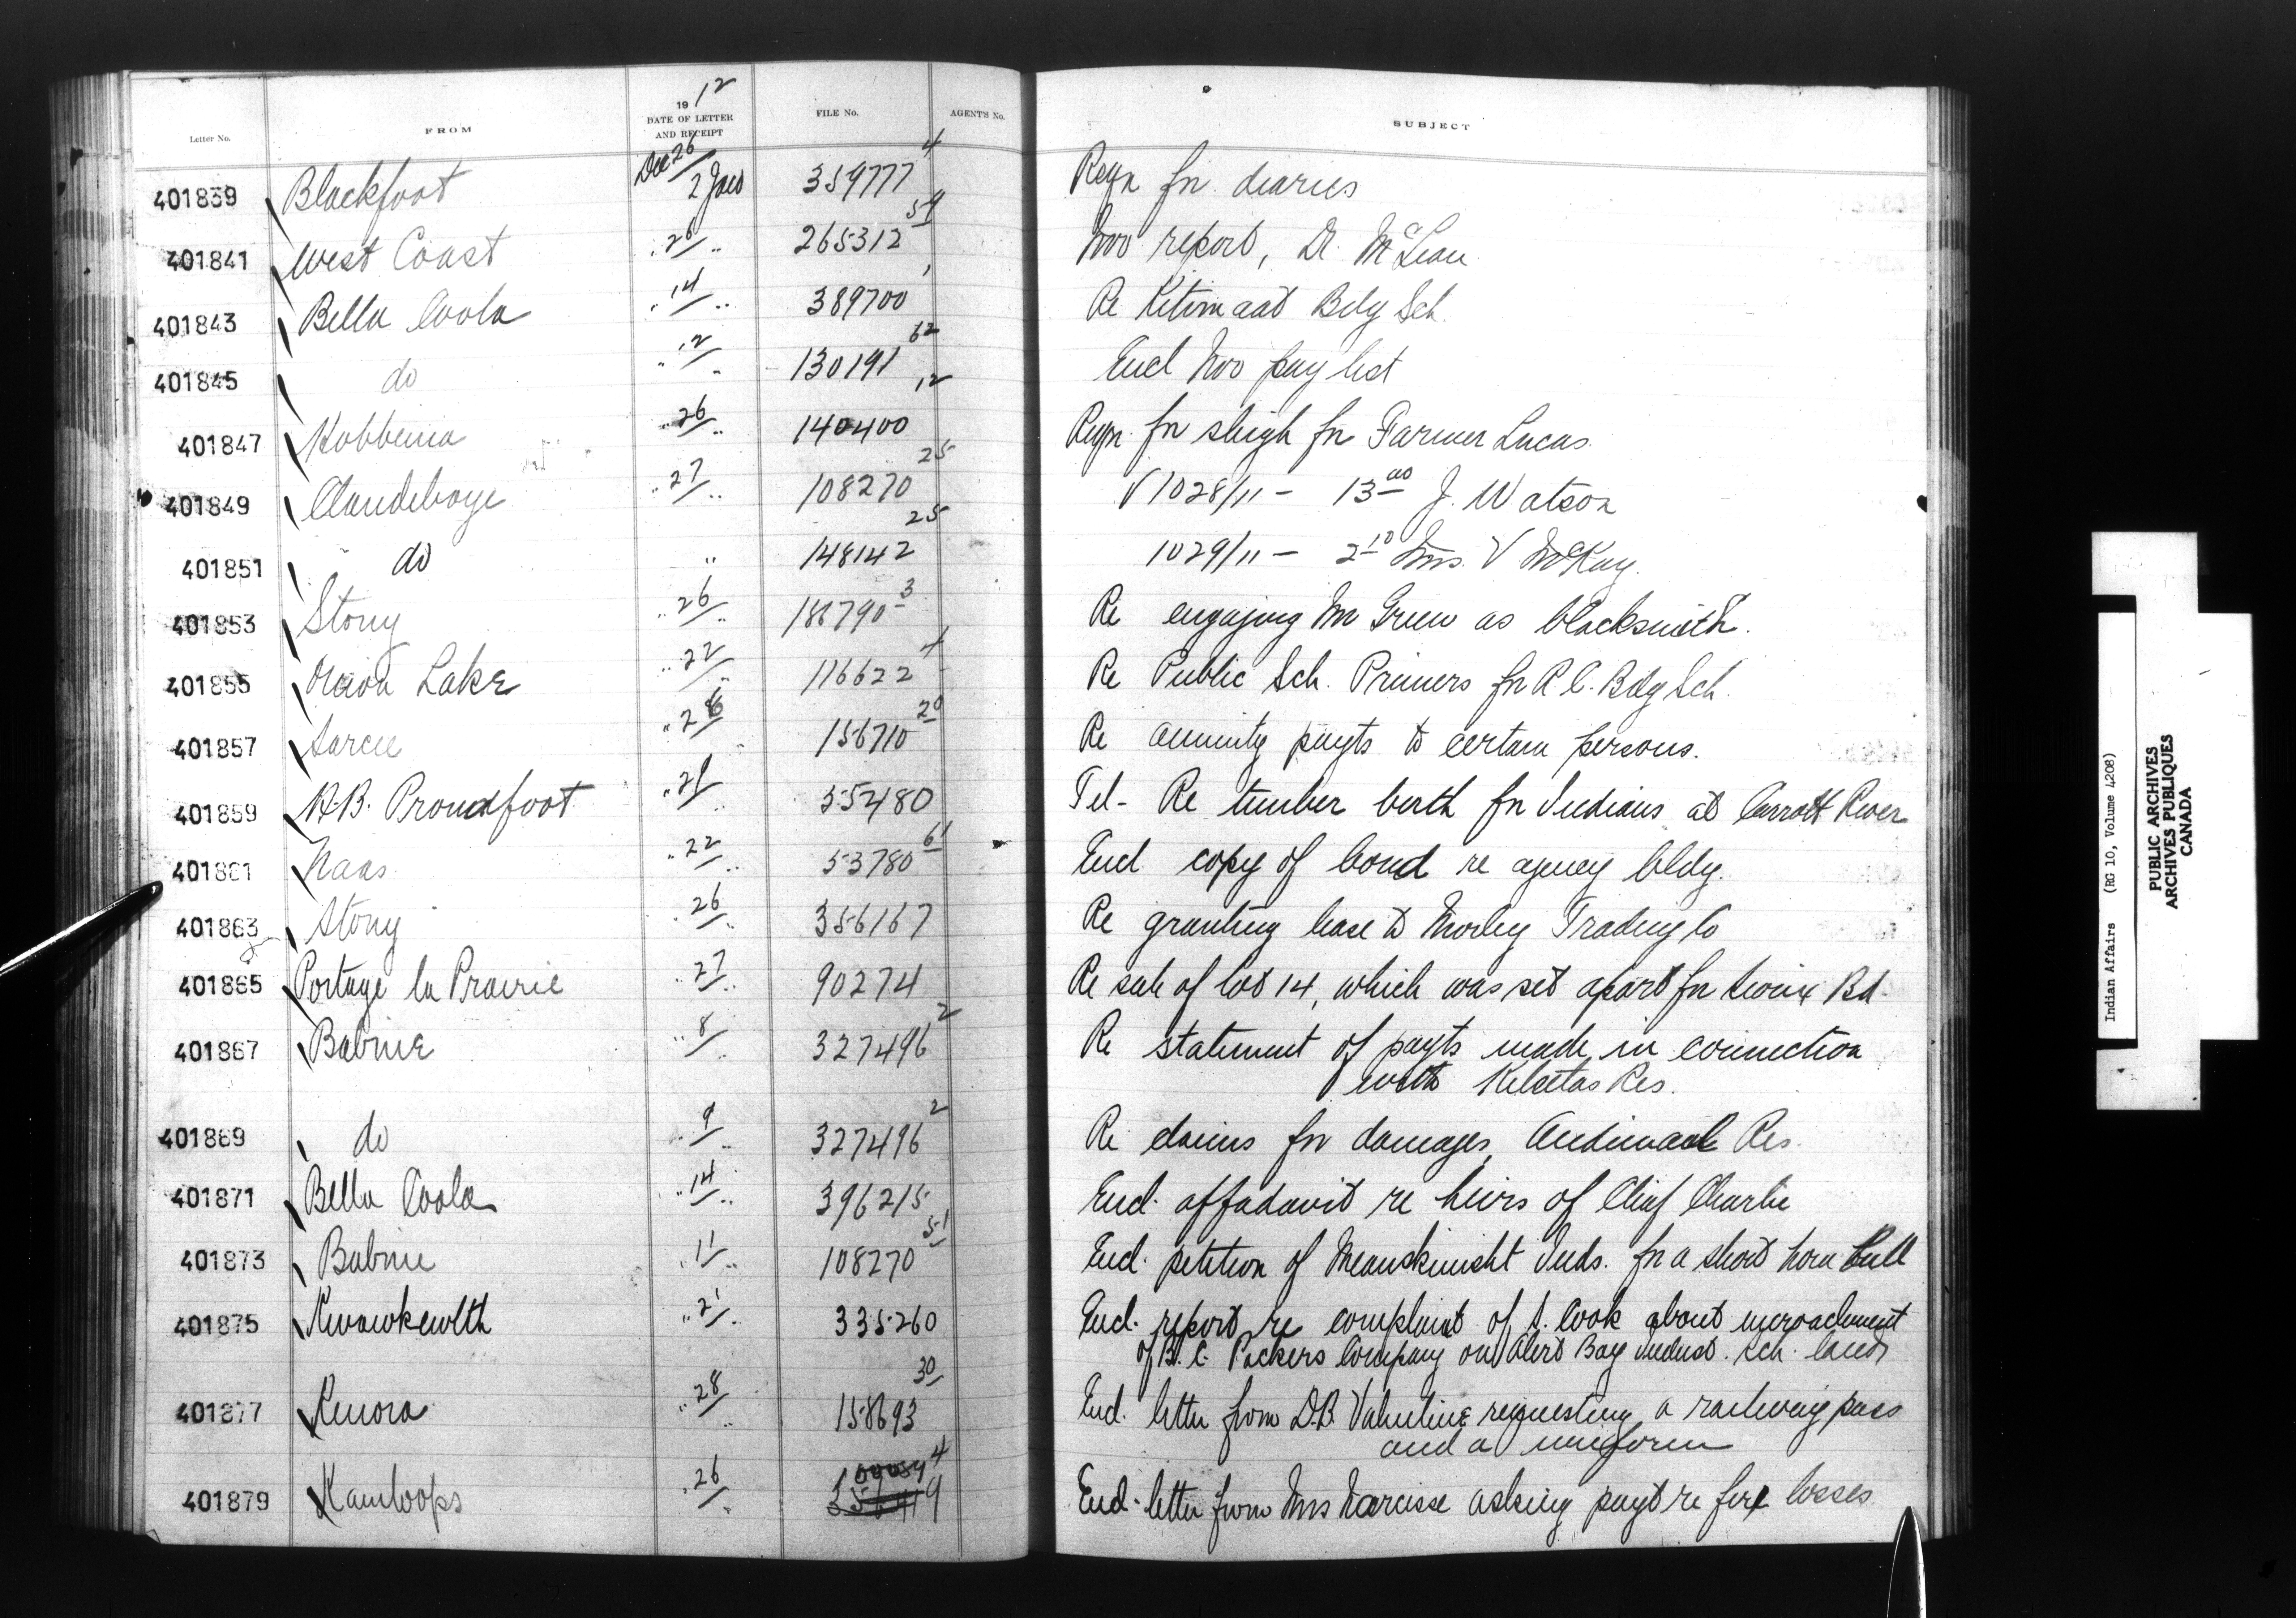 Letter No. FROM 1912 DATE OF LETTER AND RECEIPT FILE No. AGENT'S No. SUBJECT
401839 Blackfoot Dec 26/ 2 Jan 359777 4 Reqn for diaries
401841 West Coast .. 26/ .. 265312 59 Nov report, Dr. McLean
401843 Bella Coola .. 14/ .. 389700 1 Re Kitimaat Bdg Sch.
401845 do .. 12/ .. 130191 62 Encl Nov pay list
401847 Hobbema .. 26/ .. 140400 12 Reqn. for sleigh for Farmer Lucas
401849 Clandeboye .. 27/ .. 108270 25 V 1028/11 - 13.00 J. Watson
401851 do .. 148142 25 1029/11 - 2.10 Mrs. V McKay.
401853 Stony .. 26/ .. 186790 3 Re engaging Mr Green as blacksmith.
401855 Onion Lake .. 22/ .. 116622 4 Re Public Sch. Primers for R.C. Bdg Sch.
401857 Sarcee .. 26 .. 156710 20 Re annuity payts to certain persons.
401859 H.B. Proudfoot .. 28/ .. 55480 Tel - Re timber berth for Indians at Carrott River
401861 Naas .. 22/ .. 53780 61 Encl copy of bond re agency bldg.
401863 Stony .. 26/ .. 356167 Re granting lease to Morley Trading Co
401865 Portage la Prairie .. 27/ .. 90274 Re sale of lot 14, which was set apart for Sioux Bd.
401867 Babine .. 8/ .. 327496 2 Re statement of payts made in connection
with Res.
401869 do .. 9/ .. 327496 2 Re claims for damages, Andimaul Res.
401871 Bella Coola .. 14/ .. 396215 Encl. affadavit re heirs of Chief Charlie
401873 Babine .. 11/ .. 108270 51 Encl. petition of Meanskinisht Inds. for a short horn bull
401875 Kwawkewlth .. 21/ .. 335260 Encl. report re complaint of S. Cook about encroachment
of B.C. Packers Company on Alert Bay Indust. Sch. lands
401877 Kenora .. 28/ .. 158693 30 Encl. letter from D.B. Valentine requesting a railway pass
and a uniform
401879 Kamloops .. 26/ .. Encl. letter from Mrs Narcisse asking payt re fire losses
Indian Affairs (RG 10, Volume 4208)
PUBLIC ARCHIVES
ARCHIVES PUBLIQUES
CANADA